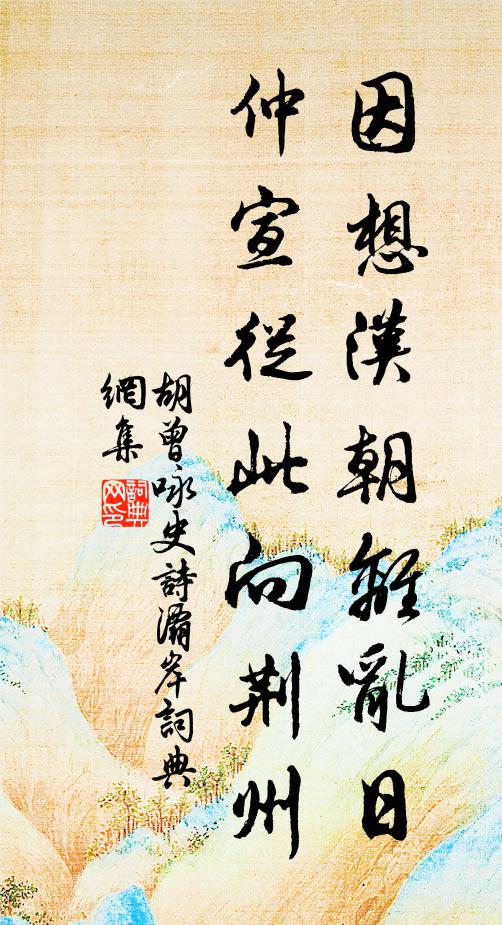 因想漢朝離亂日
仲宣從此向荆州
胡曾咏史詩灞岸詞典
網集
詞典
网印